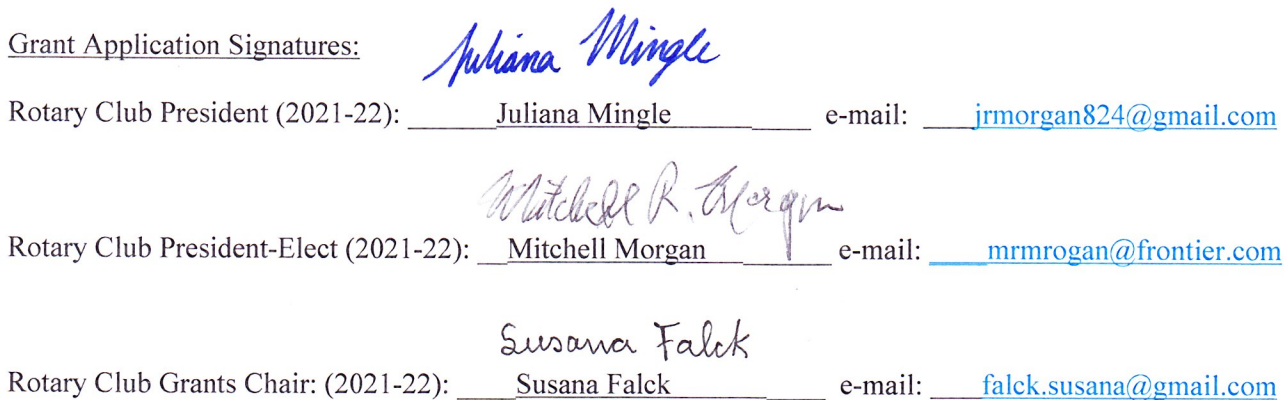 Grant Application Signatures:
Juliana Mingle
Rotary Club President (2021-22): Juliana Mingle e-mail: jrmorgan824@gmail.com
Mitchell R. Morgan
Rotary Club President-Elect (2021-22): Mitchell Morgan e-mail: mrmrogan@frontier.com
Susana Falck
Rotary Club Grants Chair: (2021-22): Susana Falck e-mail: falck.susana@gmail.com